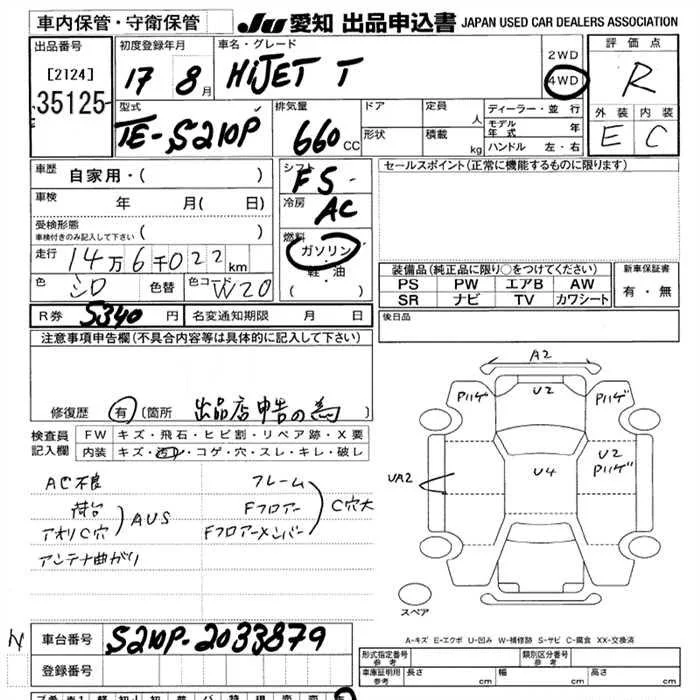 車内保管・守衛保管
JU 愛知 出品申込書 JAPAN USED CAR DEALERS ASSOCIATION
出品番号 [2124] 35125
初度登録年月 17 8月
車名・グレード HiJET T
2WD
4WD
評価点 R
外装 内装
E C
型式 TE-S210P
排気量 660 CC
ドア
形状
定員 人
積載 kg
ディーラー・並行
モデル年式 年
ハンドル 左・右
車歴 自家用・( )
車検 年 月( 日)
受検形態
車検付きのみ記入して下さい ( )
走行 14万6千022km
色 シロ 色替 色コード W20
シフト F5
冷房 AC
燃料 ガソリン・軽油
( )
セールスポイント(正常に機能するものに限ります)
装備品(純正品に限り○をつけてください)
PS PW エアB AW
SR ナビ TV カワシート
新車保証書
有・無
後日品
R券 5340円 名変通知期限 月 日
注意事項申告欄(不具合内容等は具体的に記入して下さい)
修復歴 有 (箇所 出品店申告の為)
検査員記入欄
FW キズ・飛石・ヒビ割・リペア跡・X要
内装 キズ・汚れ・コゲ・穴・スレ・キレ・破レ
AC不良
荷台
アオリC穴
AUS
アンテナ曲がり
フレーム
Fフロアー
Fフロアーメンバー
C穴大
A2
Pハゲ U2 Pハゲ
UA2 U4 U2 Pハゲ
スペア
A-キズ E-エクボ U-凹み W-補修跡 S-サビ C-腐食 XX-交換済
車台番号 S210P-2033879
登録番号
形式指定番号 参考
類別区分番号 参考
車庫証明用 参考 長さ cm 幅 cm 高さ cm